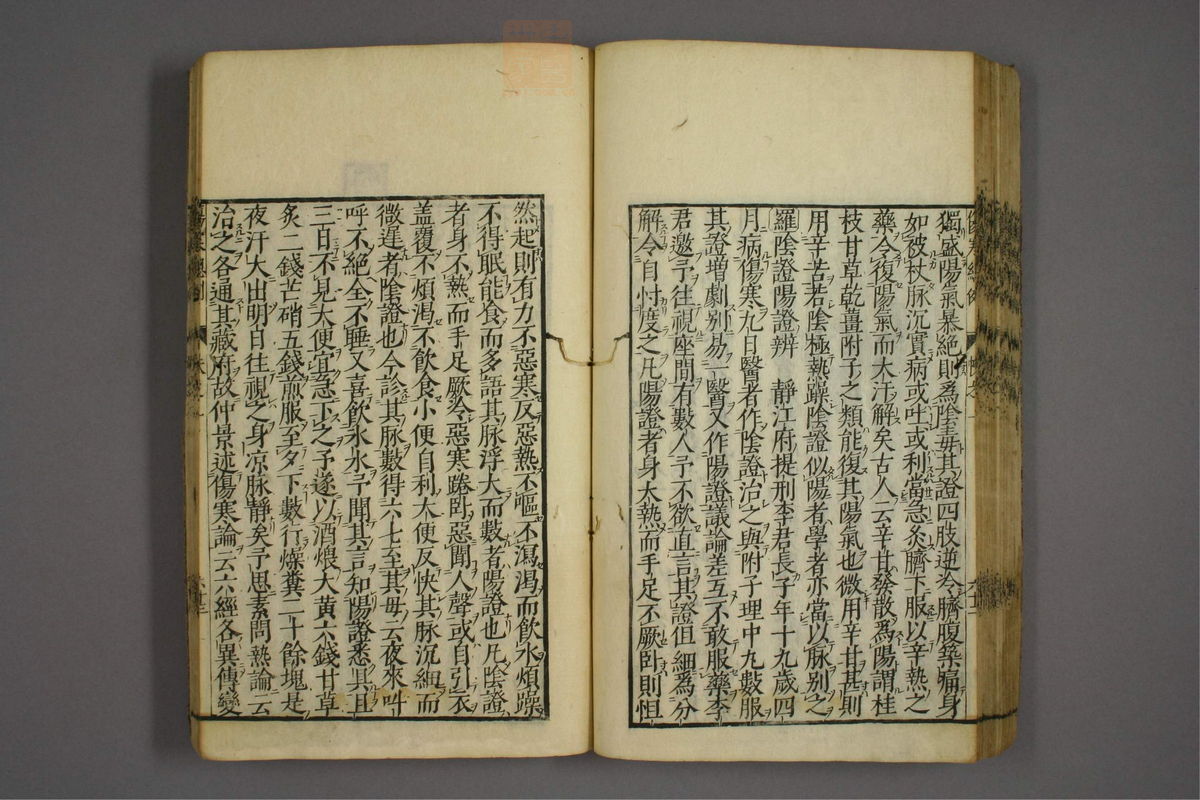 獨盛陽氣暴絶則爲陰毒其證四肢逆冷臍腹築痛身
如被杖脉沉實病或吐或利當急灸臍下服以辛熱之
藥令復陽氣而大汗解矣古人云辛甘發散爲陽謂桂
枝甘草乾薑附子之類能復其陽氣也微用辛甘甚則
用辛苦若陰極熱躁陰證似陽者學者亦當以脉別之
羅陰證陽證辨 靜江府提刑李君長子年十九歲四
月病傷寒九日醫者作陰證治之與附子理中丸數服
其證增劇別易一醫又作陽證議論差互不敢服藥李
君邀予往視座間有數人予不欲直言其證但細爲分
解令自忖度之凡陽證者身大熱而手足不厥卧則恒
然起則有力不惡寒反惡熱不嘔不瀉渴而飲水煩躁
不得眠能食而多語其脉浮大而數者陽證也凡陰證
者身不熱而手足厥冷惡寒踡卧惡聞人聲或自引衣
蓋覆不煩渴不飲食小便自利大便反快其脉沉細而
微遲者陰證也今診其脉數得六七至其母云夜來叫
呼不絶全不睡又喜飲氷水予聞其言知陽證悉具且
三日不見大便宜急下之予遂以酒煨大黄六錢甘草
炙二錢芒硝五錢煎服至夕下數行燥糞二十餘塊是
夜汗大出明日往視之身凉脉靜矣予思素問熱論云
治之各通其藏府故仲景述傷寒論云六經各異傳變